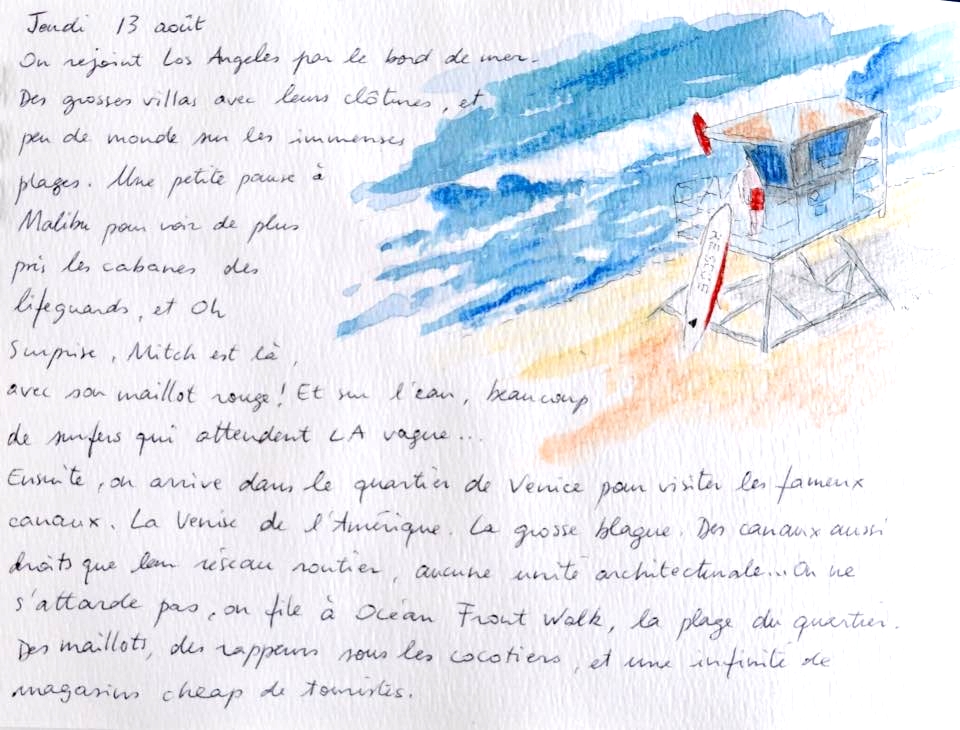 Jeudi 13 août
On rejoint Los Angeles par le bord de mer.
Des grosses villas avec leurs clôtures, et
peu de monde sur les immenses
plages. Une petite pause à
Malibu pour voir de plus
près les cabanes des
lifeguards, et Oh
Surprise, Mitch est là,
avec son maillot rouge! Et sur l'eau, beaucoup
de surfers qui attendent LA vague...
Ensuite, on arrive dans le quartier de Venice pour visiter les fameux
canaux. La Venise de l'Amérique. La grosse blague. Des canaux aussi
droits que leur réseau routier, aucune unité architecturale... On ne
s'attarde pas, on file à Océan Front Walk, la plage du quartier.
Des maillots, des rappeurs sous les cocotiers, et une infinité de
magasins cheap de touristes.
RESCUE